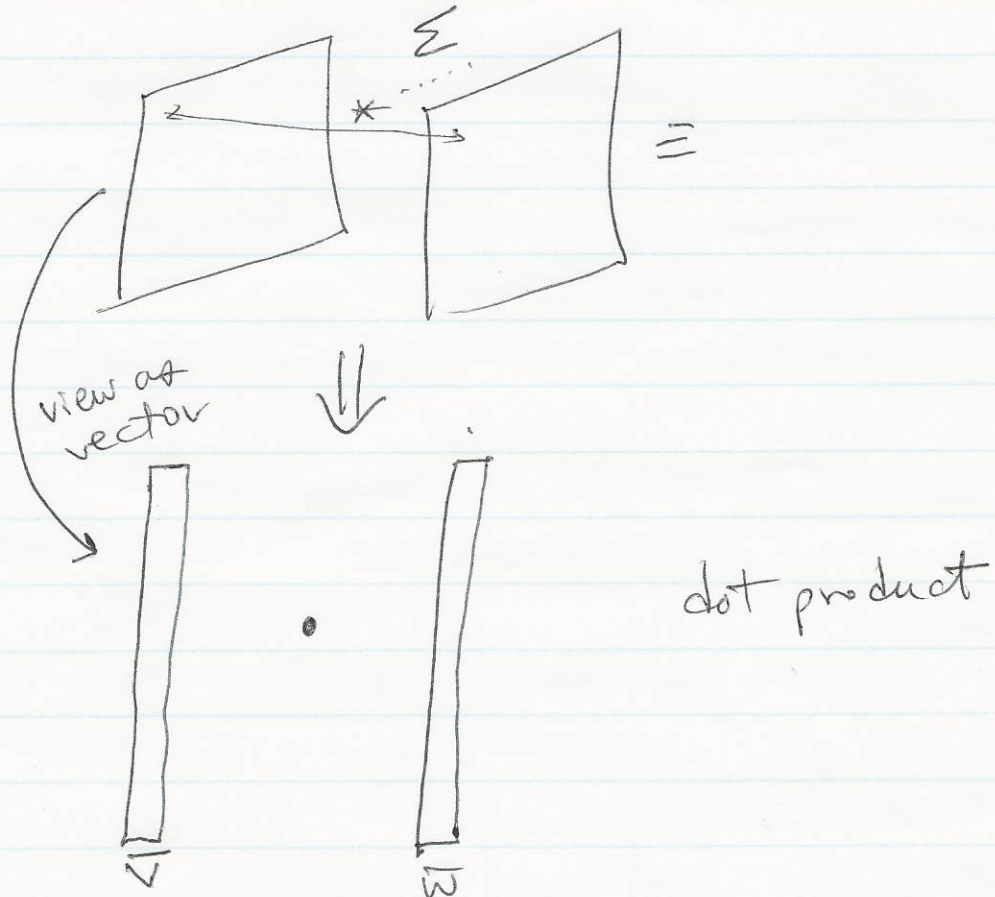 Σ
*
≡
view as
vector
dot product
v̄
w̄